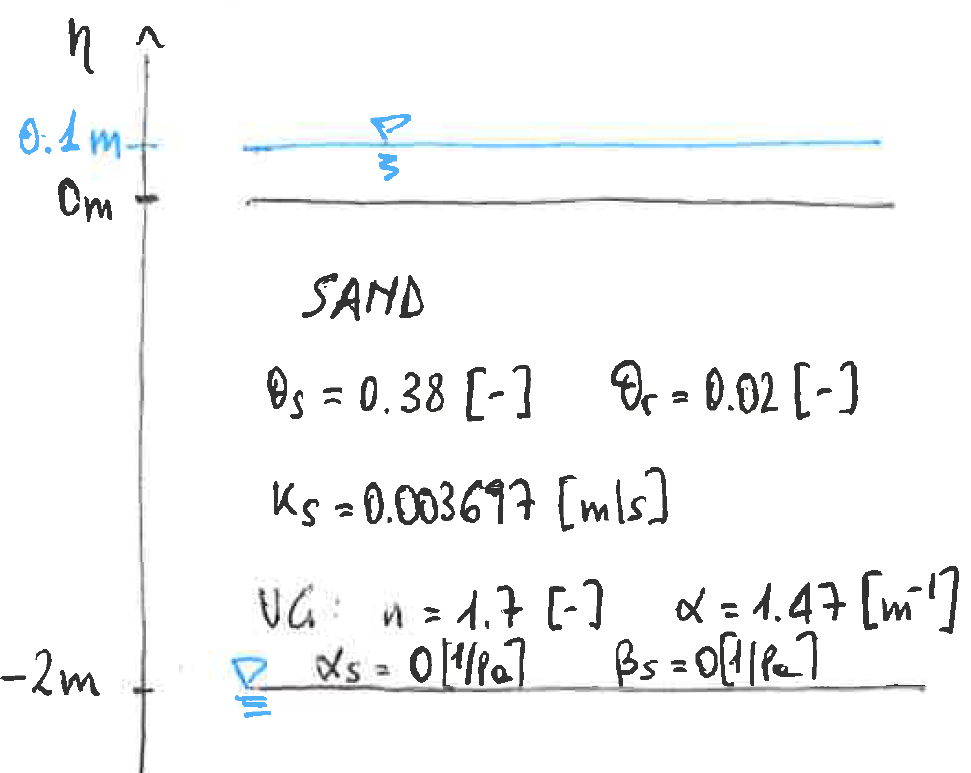 η
0.1m
0m
SAND
θs = 0.38 [-] θr = 0.02 [-]
Ks = 0.003697 [m/s]
VG: n = 1.7 [-] α = 1.47 [m⁻¹]
αs = 0 [1/Pa] βs = 0 [1/Pa]
-2m